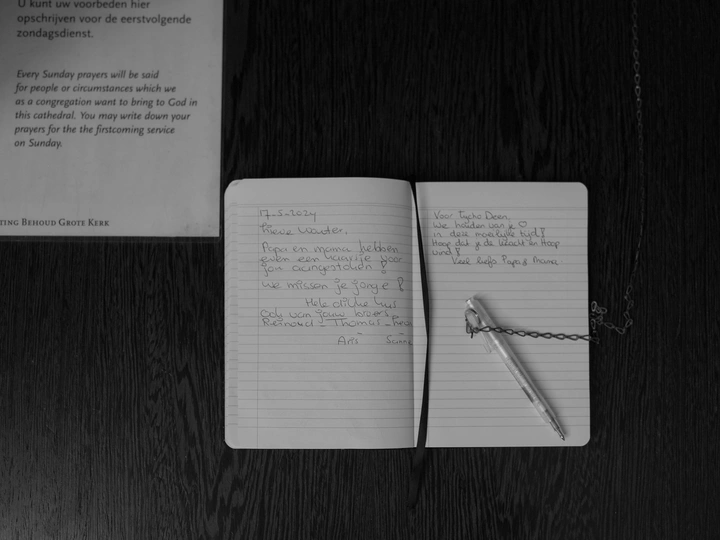 U kunt uw voorbeden hier
opschrijven voor de eerstvolgende
zondagsdienst.
Every Sunday prayers will be said
for people or circumstances which we
as a congregation want to bring to God in
this cathedral. You may write down your
prayers for the the firstcoming service
on Sunday.
TING BEHOUD GROTE KERK
17-5-2024
Lieve Wouter,
Papa en mama hebben
even een kaarsje voor
jou aangestoken!
We missen je jonge!
Hele dikke kus
Ook van jouw broers
Reinoud - Thomas -
Voor Tycho Deen,
We houden van je ♡
in deze moeilijke tijd!
Hoop dat je de kracht en Hoop
vind!
Veel liefs Papa & Mama